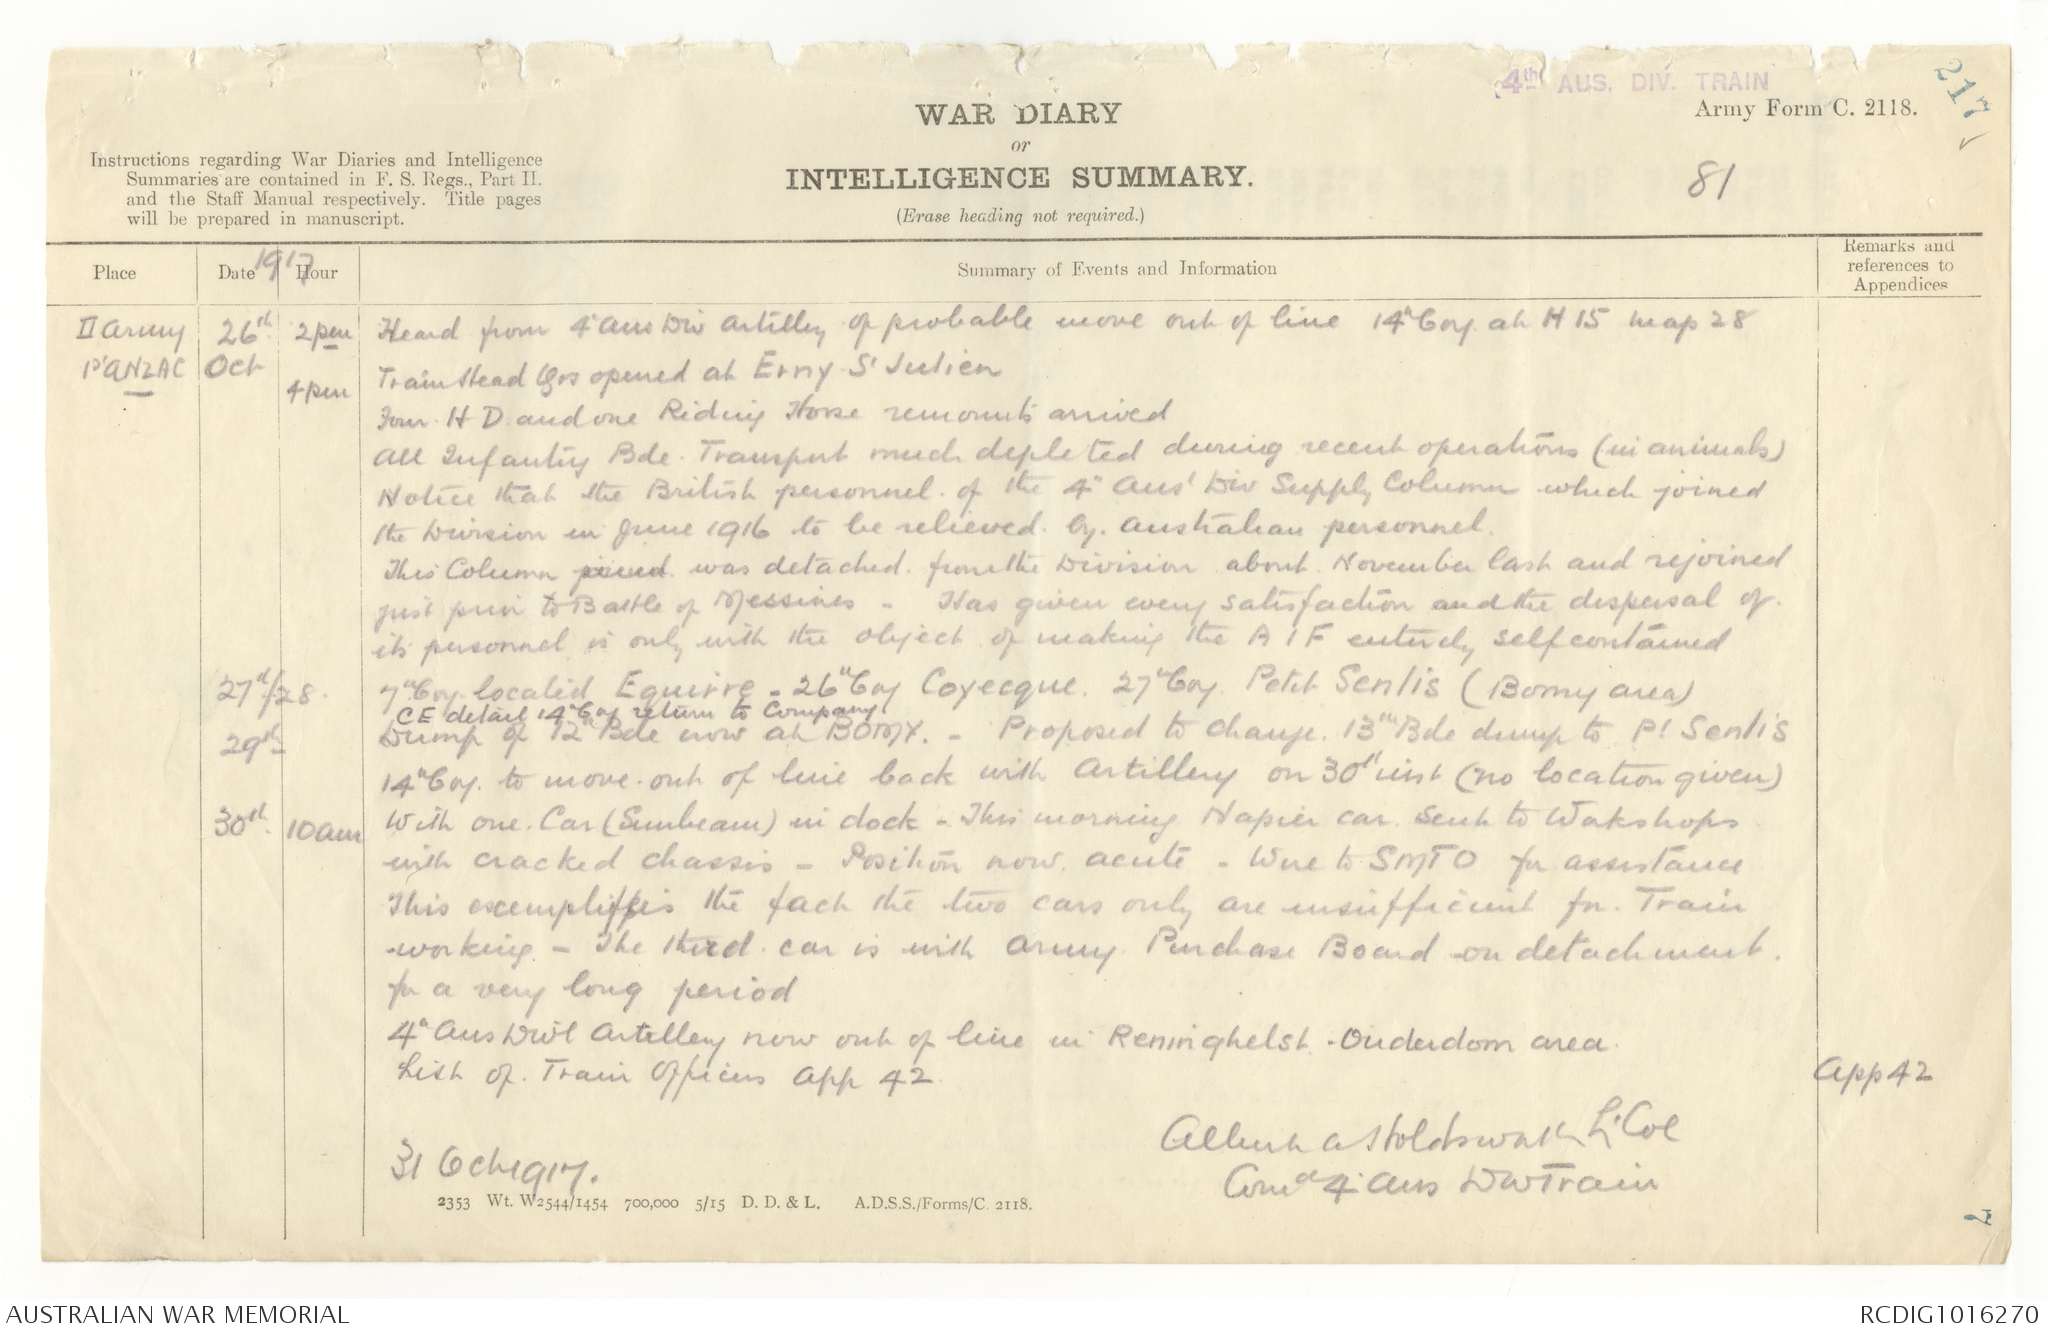 4th AUS. DIV. TRAIN
217
WAR DIARY
or
INTELLIGENCE SUMMARY.
(Erase heading not required.)
Army Form C. 2118.
81
Instructions regarding War Diaries and Intelligence
Summaries are contained in F. S. Regs., Part II.
and the Staff Manual respectively. Title pages
will be prepared in manuscript.
Place
Date 1917 Hour
Summary of Events and Information
Remarks and
references to
Appendices
II Army 26th 2pm Heard from 4th Aus Div Artillery of probable move out of line 14th Coy. at H 15 map 28
1st ANZAC Oct
4pm Train Head Qrs opened at Erny St Julien
Four H D. and one Riding Horse remounts arrived
All Infantry Bde. Transport much depleted during recent operations (in animals)
Notice that the British personnel of the 4th Aus' Div Supply Column which joined
the Division in June 1916 to be relieved by Australian personnel.
This Column joined was detached from the Division about November last and rejoined
just prior to Battle of Messines - Has given every satisfaction and the dispersal of
its personnel is only with the object of making the A I F entirely self contained
27th/28. 7th Coy. located Equirre - 26th Coy Coyecque. 27th Coy. Petit Senlis (Bomy area)
CE detail 14th Coy return to Company
29th Dump of 12th Bde now at BOMY. - Proposed to change 13th Bde dump to Pt Senlis
14th Coy. to move out of line back with Artillery on 30th inst (no location given)
30th 10am With one Car (Sunbeam) in dock - This morning Napier car sent to Wokshops
with cracked chassis - Position now acute - Wire to SMTO for assistance
This exemplifies the fact the two cars only are insufficient for Train
working - The third car is with Army Purchase Board on detachment.
for a very long period
4th Aus Div'l Artillery now out of line in Reninghelst - Ouderdom area.
List of Train Officers App 42
App 42
Albert A Holdsworth Lt Col
Comd 4th Aus Div Train
31 Oct 1917.
2353 Wt. W2544/1454 700,000 5/15 D. D. & L. A.D.S.S./Forms/C. 2118.
AUSTRALIAN WAR MEMORIAL
RCDIG1016270